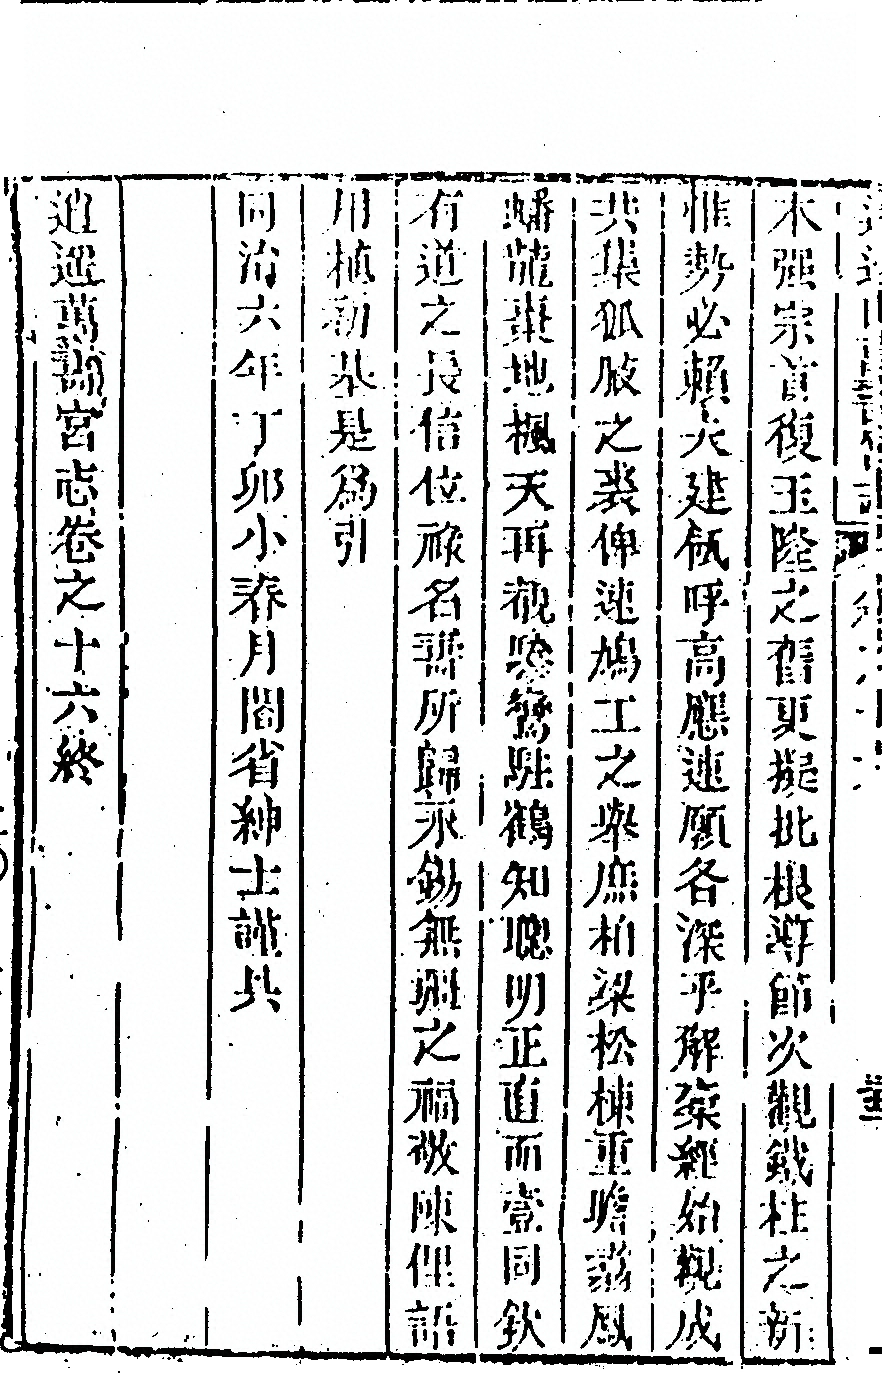 木強宗首復玉陛之舊更擬批根導節次觀鐵柱之新
惟勢必賴夫建瓴呼高應速願各深乎解橐經始觀成
共集狐腋之裘俾速鳩工之舉庶柏梁松棟重瞻翥鳳
蟠龍棗地楓天再覩驂鸞駐鶴知聰明正直而壹同欽
有道之長信位祿名壽所歸永錫無疆之福敬陳俚語
用植新基是爲引
同治六年丁卯小春月闔省紳士謹具
逍遙萬壽宮志卷之十六終